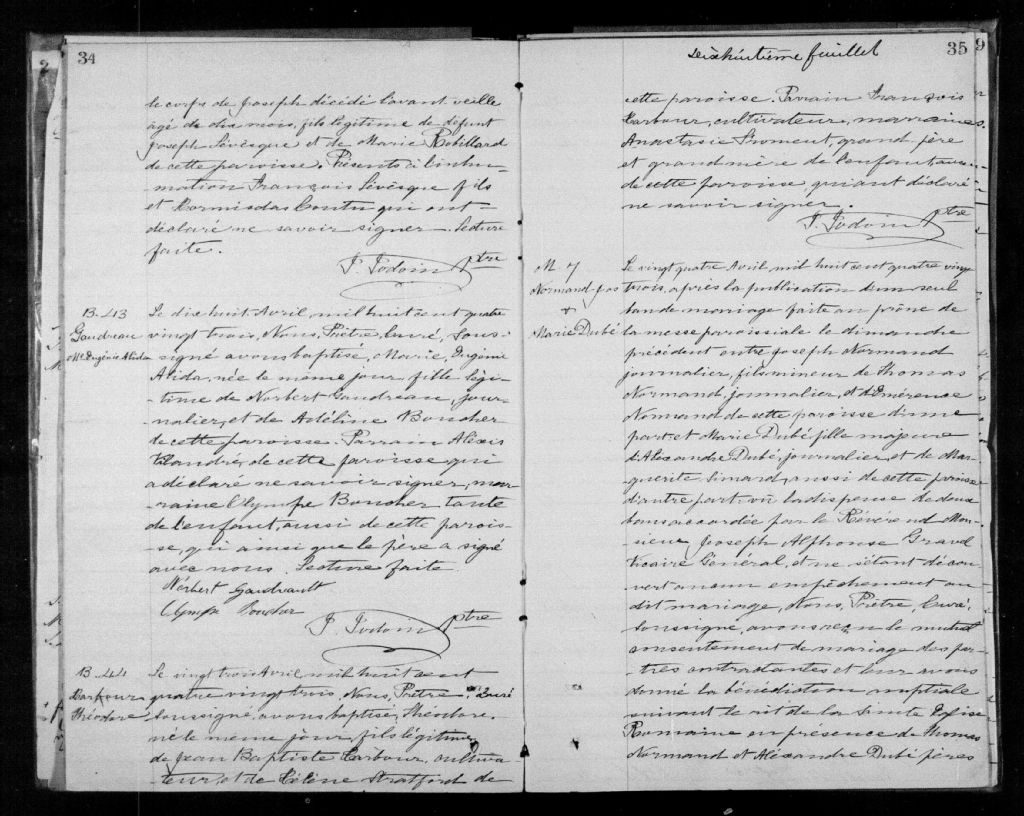 34
le corps de Joseph décédé l'avant veille
âgé de dix mois, fils légitime de défunt
Joseph Lévesque et de Marie Robillard
de cette paroisse. Présents à l'inhu-
-mation François Lévesque fils
et Hormisdas Contu qui ont
déclaré ne savoir signer. Lecture
faite.
P. Jodoin ptre
B. 43
Gaudreau
Mie Eugénie Alida
Le dix huit Avril mil huit cent quatre
vingt trois, Nous, Prêtre, Curé, Sous-
-signé avons baptisé, Marie, Eugénie
Alida, née le même jour, fille légi-
-time de Norbert Gaudreau, jour-
-nalier, et de Adéline Boucher
de cette paroisse. Parrain Alexis
Landré, de cette paroisse qui
a déclaré ne savoir signer, mar-
-raine Olympe Boucher tante
de l'enfant, aussi de cette parois-
-se, qui ainsi que le père a signé
avec nous. Lecture faite
Norbert Gaudreault
Olympe Boucher
P. Jodoin ptre
B. 44
Barbour
Théodore
Le vingt trois Avril mil huit cent
quatre vingt trois, Nous, Prêtre, Curé
Soussigné, avons baptisé, Théodore,
né le même jour, fils légitime
de Jean Baptiste Barbour, cultiva-
-teur, et de Hélène Stratford de
Dixhuitième feuillet
35
cette paroisse. Parrain François
Barbour, cultivateur, marraine
Anastasie Froment, grand père
et grand mère de l'enfant aussi
de cette paroisse qui ont déclaré
ne savoir signer.
P. Jodoin ptre
M. 7
Normand Jos
+
Marie Dubé
Le vingt quatre Avril mil huit cent quatre vingt
trois, après la publication d'un seul
ban de mariage faite au prône de
la messe paroissiale le dimanche
précédent entre Joseph Normand
journalier, fils mineur de Thomas
Normand, journalier, et d'Émérence
Normand de cette paroisse d'une
part, et Marie Dubé fille majeure
d'Alexandre Dubé, journalier, et de Mar-
-guerite Simard, aussi de cette paroisse
d'autre part; vu la dispense de deux
bans accordée par le Révérend Mon-
-sieur Joseph Alphonse Gravel
Vicaire Général, et ne s'étant décou-
-vert aucun empêchement au
dit mariage, Nous, Prêtre, Curé,
soussigné, avons reçu le mutuel
consentement de mariage des par-
-ties contractantes et leur avons
donné la bénédiction nuptiale
suivant le rit de la Sainte Église
Romaine en présence de Thomas
Normand et Alexandre Dubé pères